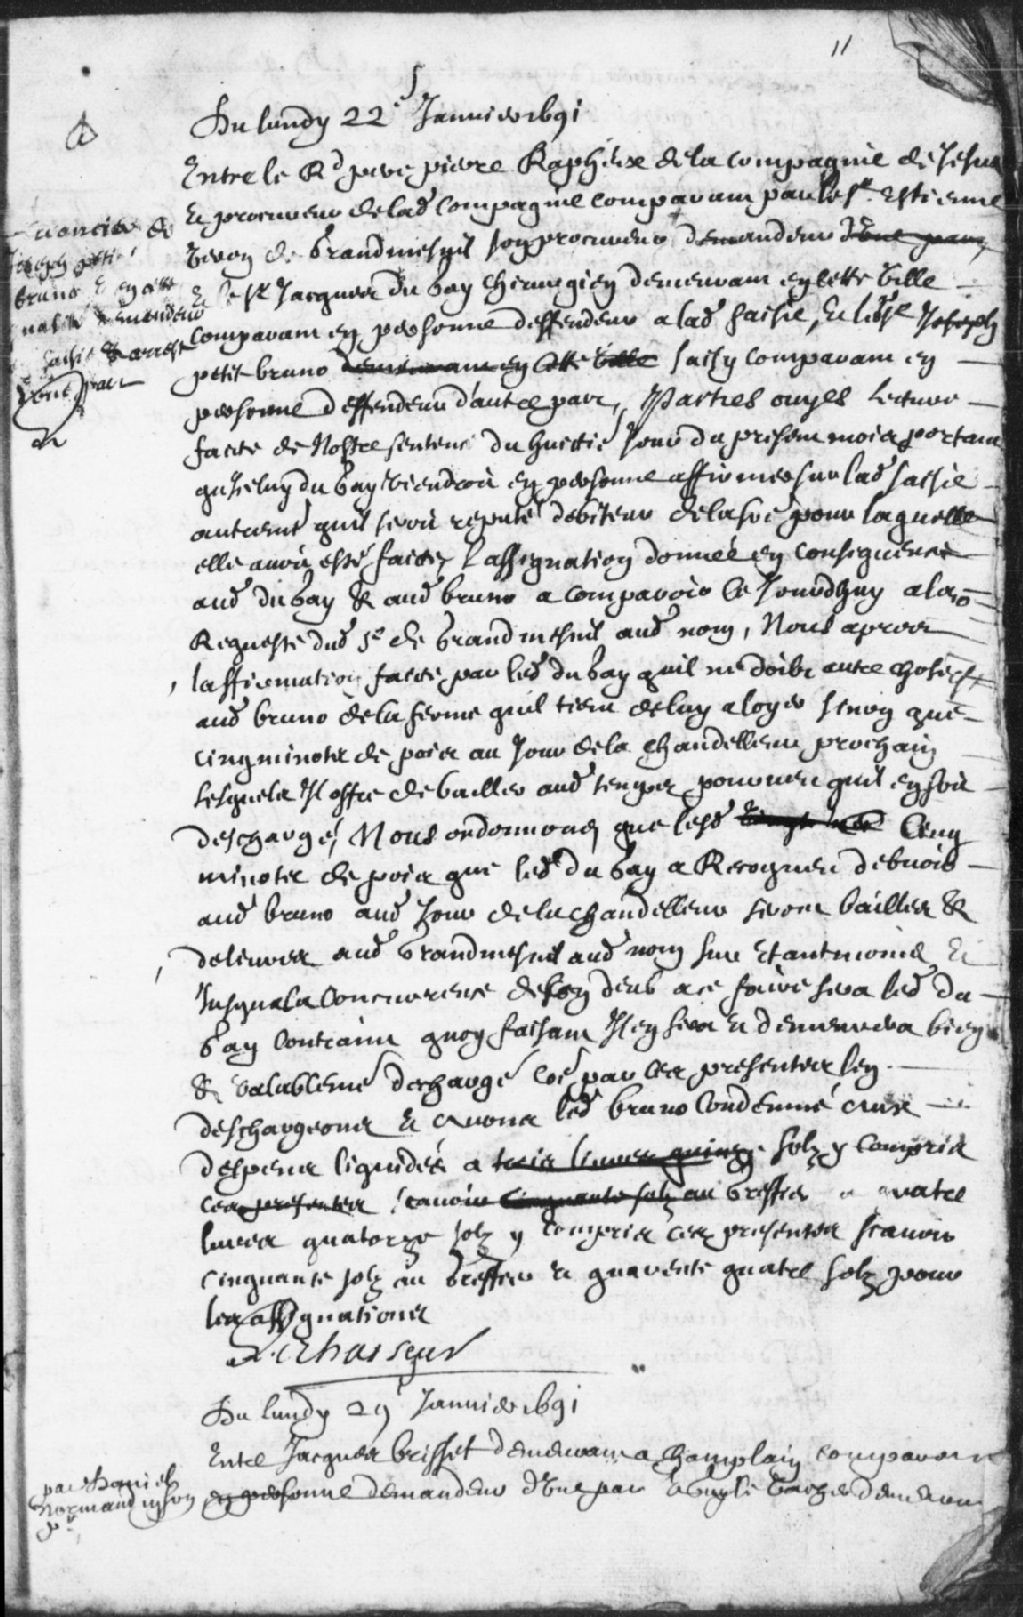 11
Du lundy 22e Januier 1691
Entre le Rd pere pierre Rapheixe de la compagnie de Jesus
Et procureur de lad compagnie comparant par le sr Estienne
veron de Grandmesnil son procureur demandeur d'une part
Creancier de
Joseph petit
bruno
demandeur
en saisie & arrest
d'une part
Et le sr Jacques Du bay chirurgien demeurant en cette ville
comparant en personne deffendeur a lad saisie, Et led sr Joseph
petit bruno demeurant en cette ville saisy comparant en
personne deffendeur d'autre part, Parties ouyes lecture
faicte de Nostre sentence du huictie Jour du present mois portant
qu'Iceluy du bay viendroit en personne affirmer sur lad saisie
autrement quil seroit reputé debiteur de la so͞e pour laquelle
elle auroit esté faicte, l'assignation donnée en consequence
aud du bay & aud bruno a comparoir ce Jourdhuy a la
Requeste dud sr de Grandmesnil aud nom, Nous apres
l'affirmation faicte par led du bay quil ne doibt autre chose
aud bruno de la ferme quil tient de luy a loyer sinon que
cinq minots de pois au Jour de la chandelleur prochain
lesquels Il offre de bailler aud temps pourueu quil en soit
deschargé, Nous ordonnons que lesd cinq
minots de pois que led du bay a Recogneu debuoir
aud bruno aud Jour de la chandelleur seront baillés &
deliurés aud Grandmesnil aud nom sur Et antmoins Et
Jusqu'a la concurrence de son deub a ce faire sera led du
bay contraint quoy faisant Il en sera Et demeurera bien
& valablement dechargé co͞e par ces presentes l'en
deschargeons Et Auons led bruno Condemné aux
despens liquidés a trois liures quinze solz y compris
ces presentes scauoir cinquante solz au Greffier a quatre
liures quatorze solz y compris ces presentes scauoir
cinquante solz au Greffier Et quarente quatre solz pour
les assignations
Lechasseur
Du lundy 29e Januier 1691
Entre Jacques brisset demeurant a champlain comparant
par Daniel
Normandin son
pr
en personne demandeur d'une part